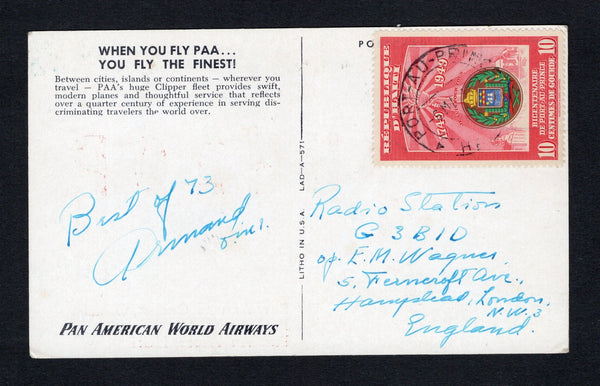 WHEN YOU FLY PAA...
YOU FLY THE FINEST!
Between cities, islands or continents — wherever you
travel — PAA's huge Clipper fleet provides swift,
modern planes and thoughtful service that reflects
over a quarter century of experience in serving dis-
criminating travelers the world over.
Best of 73
Armand
PAN AMERICAN WORLD AIRWAYS
LITHO IN U.S.A. LAD-A-571
PO
REPUBLIQUE
D'HAITI
1749 1949
BICENTENAIRE
DE PORT-AU-PRINCE
10 CENTIMES DE GOURDE 10
PORT-AU-PRIN
Radio Station
G3BID
op. E.M. Wagner,
5, Ferncroft Ave.,
Hampstead, London,
N.W.3
England.